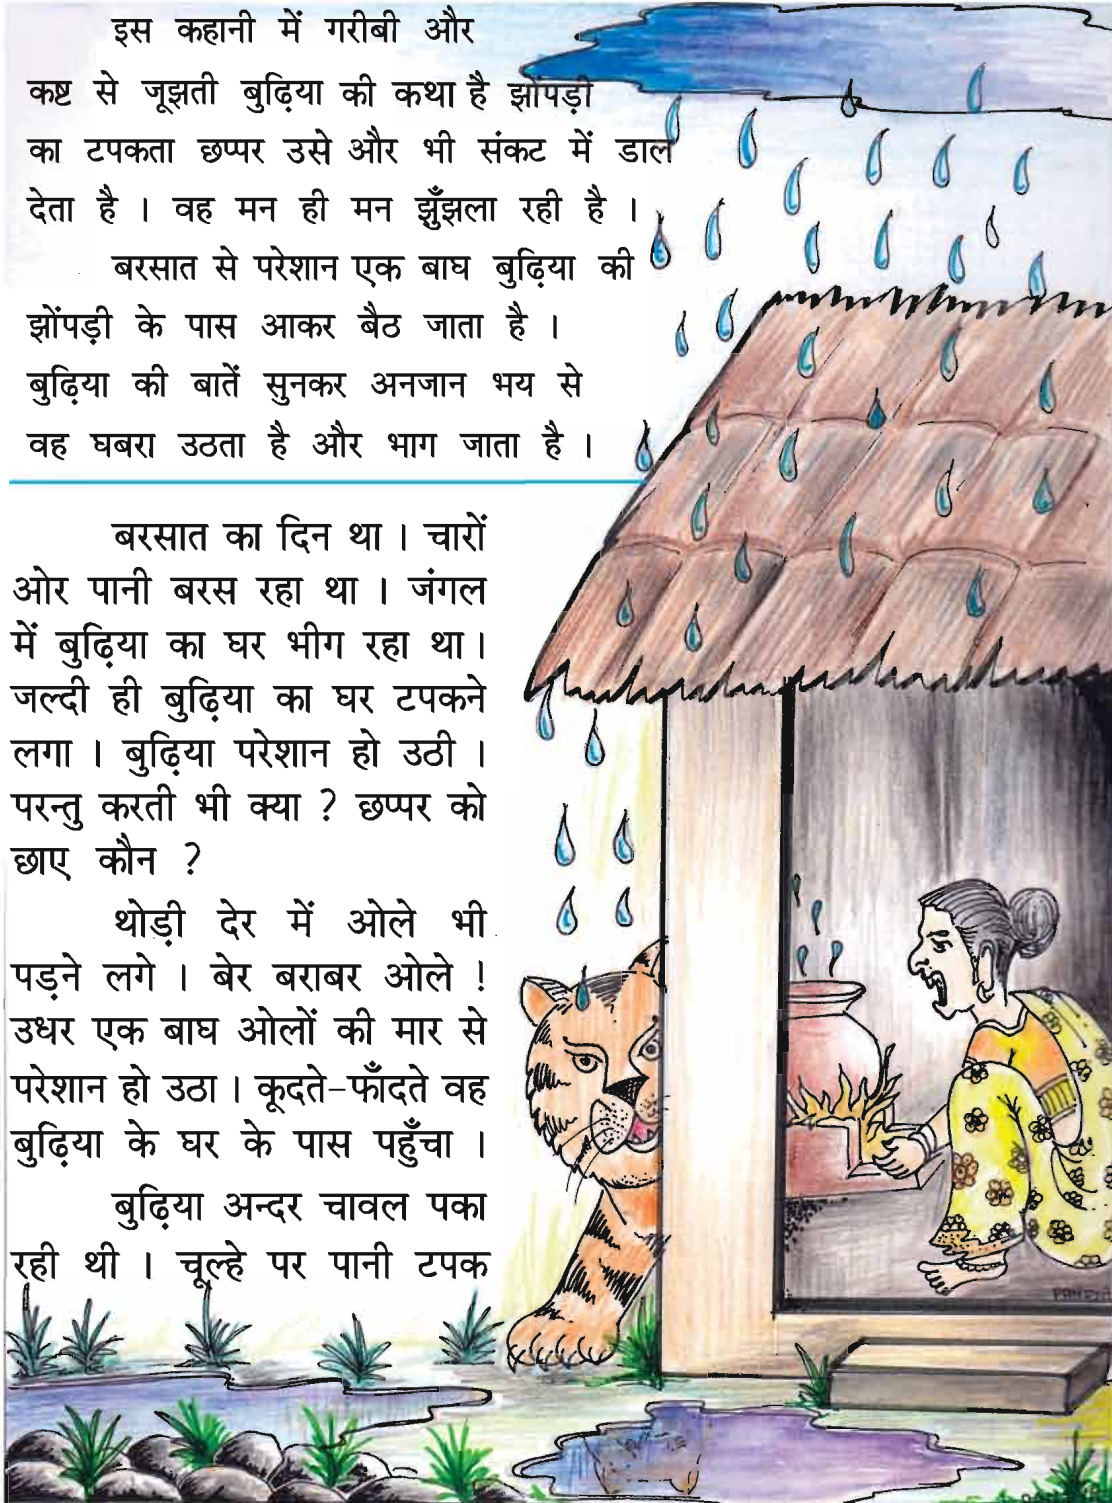 इस कहानी में गरीबी और
कष्ट से जूझती बुढ़िया की कथा है झोंपड़ी
का टपकता छप्पर उसे और भी संकट में डाल
देता है । वह मन ही मन झुँझला रही है ।
बरसात से परेशान एक बाघ बुढ़िया की
झोंपड़ी के पास आकर बैठ जाता है ।
बुढ़िया की बातें सुनकर अनजान भय से
वह घबरा उठता है और भाग जाता है ।
बरसात का दिन था । चारों
ओर पानी बरस रहा था । जंगल
में बुढ़िया का घर भीग रहा था।
जल्दी ही बुढ़िया का घर टपकने
लगा । बुढ़िया परेशान हो उठी ।
परन्तु करती भी क्या ? छप्पर को
छाए कौन ?
थोड़ी देर में ओले भी
पड़ने लगे । बेर बराबर ओले !
उधर एक बाघ ओलों की मार से
परेशान हो उठा । कूदते-फाँदते वह
बुढ़िया के घर के पास पहुँचा ।
बुढ़िया अन्दर चावल पका
रही थी । चूल्हे पर पानी टपक